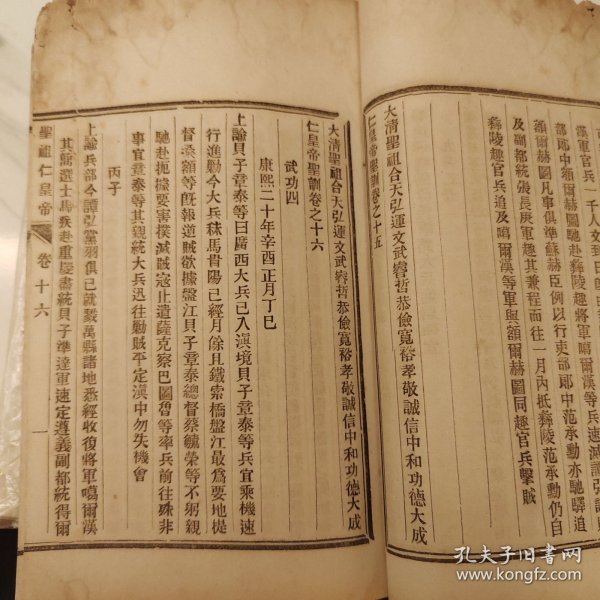 漢軍官兵一千人文到日卽
部郎中額爾赫圖馳赴彝陵趣將軍噶爾漢等兵速滅譚弘
額爾赫圖凡事俱準蘇赫臣例以行吏部郎中范承勳亦馳驛追
及副都統張長庚趣其兼程而往一月內抵彝陵范承勳仍自
彝陵趣官兵追及噶爾漢等軍與額爾赫圖同趣官兵擊賊
大清聖祖合天弘運文武睿哲恭儉寬裕孝敬誠信中和功德大成
仁皇帝聖訓卷之十五
大清聖祖合天弘運文武睿哲恭儉寬裕孝敬誠信中和功德大成
仁皇帝聖訓卷之十六
武功四
康熙二十年辛酉正月丁巳
上諭貝子章泰等曰廣西大兵已入滇境貝子章泰等兵宜乘機速
行進勦今大兵秣馬貴陽已經月餘且鐵索橋盤江最爲要地提
督桑額等旣報道賊欲據盤江貝子章泰總督蔡毓榮等不躬親
馳赴扼據要害撲滅賊寇止遣薩克察巴圖魯等率兵前往殊非
事宜章泰等其親統大兵迅往勦賊平定滇中勿失機會
丙子
上諭兵部今譚弘黨羽俱已就戮萬縣諸地悉經收復將軍噶爾漢
其簡選士馬疾赴重慶書統貝子準達軍速定遵義副都統得爾
聖祖仁皇帝
卷十六
一
孔夫子旧书网
www.kongfz.com